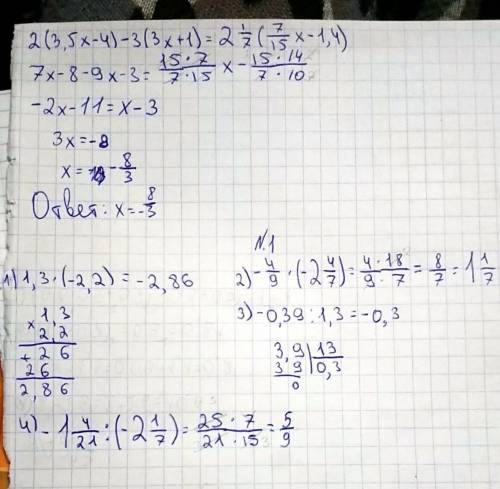 2(3,5x-4)-3(3x+1)=2 1/7 (7/15 x-1,4)
7x-8-9x-3= 15·7/7·15 x - 15·14/7·10
-2x-11=x-3
3x=-8
x= -8/3
Ответ: x=-8/3
№1
1) 1,3·(-2,2)=-2,86
1,3
× 2,2
+ 2 6
2 6
2,8 6
2) -4/9 ·(-2 4/7)= 4·18/9·7 = 8/7 = 1 1/7
3) -0,39:1,3=-0,3
3,9 | 13
3 9 | 0,3
0
4) -1 4/21 :(-2 1/7)= 25·7/21·15 = 5/9